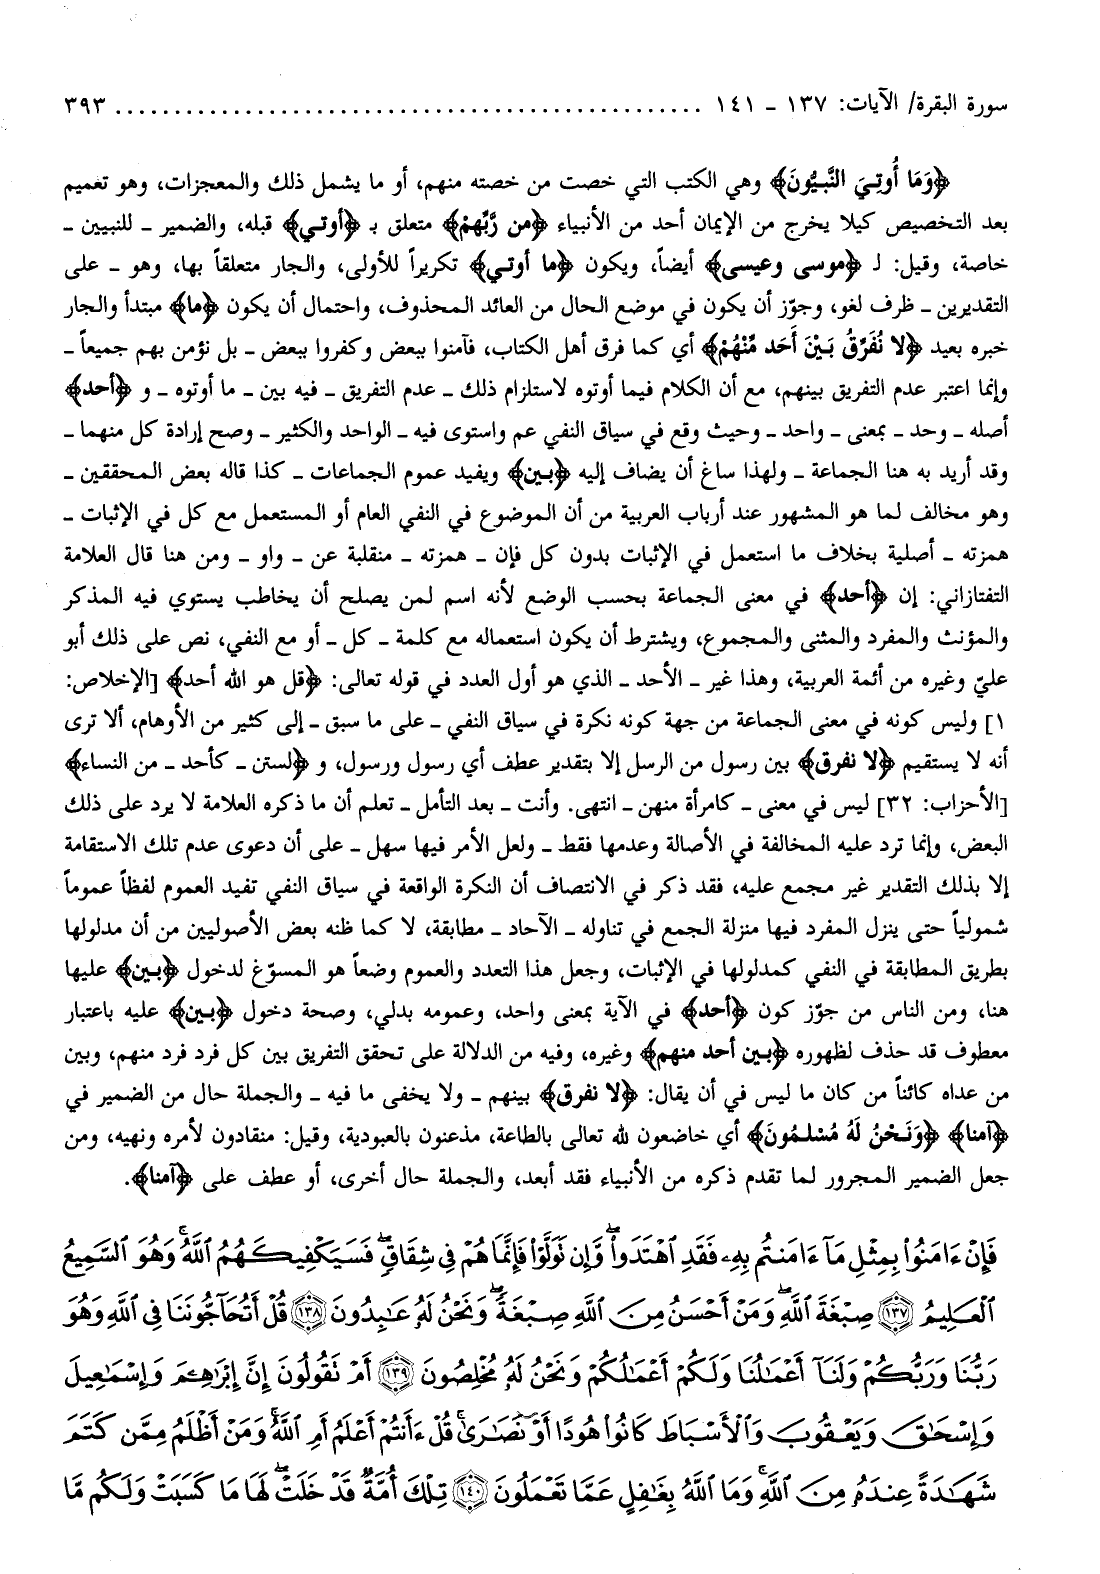 سورة البقرة/ الآيات: ١٣٧ ـ ١٤١ ................................................ ٣٩٣
﴿وَمَا أُوتِيَ النَّبِيُّونَ﴾ وهي الكتب التي خصت من خصته منهم، أو ما يشمل ذلك والمعجزات، وهو تعميم
بعد التخصيص كيلا يخرج من الإيمان أحد من الأنبياء ﴿مِن رَّبِّهِمْ﴾ متعلق بـ ﴿أوتي﴾ قبله، والضمير ـ للنبيين ـ
خاصة، وقيل: لـ ﴿موسى وعيسى﴾ أيضاً، ويكون ﴿ما أوتي﴾ تكريراً للأولى، والجار متعلقاً بها، وهو ـ على
التقديرين ـ ظرف لغو، وجوّز أن يكون في موضع الحال من العائد المحذوف، واحتمال أن يكون ﴿ما﴾ مبتدأ والجار
خبره بعيد ﴿لا نُفَرِّقُ بَيْنَ أَحَد مِّنْهُمْ﴾ أي كما فرق أهل الكتاب، فآمنوا ببعض وكفروا ببعض ـ بل نؤمن بهم جميعاً ـ
وإنما اعتبر عدم التفريق بينهم، مع أن الكلام فيما أوتوه لاستلزام ذلك ـ عدم التفريق ـ فيه بين ـ ما أوتوه ـ و ﴿أحد﴾
أصله ـ وحد ـ بمعنى ـ واحد ـ وحيث وقع في سياق النفي عم واستوى فيه ـ الواحد والكثير ـ وصح إرادة كل منهما ـ
وقد أريد به هنا الجماعة ـ ولهذا ساغ أن يضاف إليه ﴿بين﴾ ويفيد عموم الجماعات ـ كذا قاله بعض المحققين ـ
وهو مخالف لما هو المشهور عند أرباب العربية من أن الموضوع في النفي العام أو المستعمل مع كل في الإثبات ـ
همزته ـ أصلية بخلاف ما استعمل في الإثبات بدون كل فإن ـ همزته ـ منقلبة عن ـ واو ـ ومن هنا قال العلامة
التفتازاني: إن ﴿أحد﴾ في معنى الجماعة بحسب الوضع لأنه اسم لمن يصلح أن يخاطب يستوي فيه المذكر
والمؤنث والمفرد والمثنى والمجموع، ويشترط أن يكون استعماله مع كلمة ـ كل ـ أو مع النفي، نص على ذلك أبو
عليّ وغيره من أئمة العربية، وهذا غير ـ الأحد ـ الذي هو أول العدد في قوله تعالى: ﴿قل هو الله أحد﴾ [الإخلاص:
١] وليس كونه في معنى الجماعة من جهة كونه نكرة في سياق النفي ـ على ما سبق ـ إلى كثير من الأوهام، ألا ترى
أنه لا يستقيم ﴿لا نفرق﴾ بين رسول من الرسل إلا بتقدير عطف أي رسول ورسول، و ﴿لستن ـ كأحد ـ من النساء﴾
[الأحزاب: ٣٢] ليس في معنى ـ كامرأة منهن ـ انتهى. وأنت ـ بعد التأمل ـ تعلم أن ما ذكره العلامة لا يرد على ذلك
البعض، وإنما ترد عليه المخالفة في الأصالة وعدمها فقط ـ ولعل الأمر فيها سهل ـ على أن دعوى عدم تلك الاستقامة
إلا بذلك التقدير غير مجمع عليه، فقد ذكر في الانتصاف أن النكرة الواقعة في سياق النفي تفيد العموم لفظاً عموماً
شمولياً حتى ينزل المفرد فيها منزلة الجمع في تناوله ـ الآحاد ـ مطابقة، لا كما ظنه بعض الأصوليين من أن مدلولها
بطريق المطابقة في النفي كمدلولها في الإثبات، وجعل هذا التعدد والعموم وضعاً هو المسوّغ لدخول ﴿بين﴾ عليها
هنا، ومن الناس من جوّز كون ﴿أحد﴾ في الآية بمعنى واحد، وعمومه بدلي، وصحة دخول ﴿بين﴾ عليه باعتبار
معطوف قد حذف لظهوره ﴿بين أحد منهم﴾ وغيره، وفيه من الدلالة على تحقق التفريق بين كل فرد فرد منهم، وبين
من عداه كائناً من كان ما ليس في أن يقال: ﴿لا نفرق﴾ بينهم ـ ولا يخفى ما فيه ـ والجملة حال من الضمير في
﴿آمنا﴾ ﴿وَنَحْنُ لَهُ مُسْلِمُونَ﴾ أي خاضعون لله تعالى بالطاعة، مذعنون بالعبودية، وقيل: منقادون لأمره ونهيه، ومن
جعل الضمير المجرور لما تقدم ذكره من الأنبياء فقد أبعد، والجملة حال أخرى، أو عطف على ﴿آمنا﴾.
فَإِنْ ءَامَنُوا۟ بِمِثْلِ مَآ ءَامَنتُم بِهِۦ فَقَدِ ٱهْتَدَوا۟ ۖ وَّإِن تَوَلَّوْا۟ فَإِنَّمَا هُمْ فِى شِقَاقٍ ۖ فَسَيَكْفِيكَهُمُ ٱللَّهُ ۚ وَهُوَ ٱلسَّمِيعُ
ٱلْعَلِيمُ ١٣٧ صِبْغَةَ ٱللَّهِ ۖ وَمَنْ أَحْسَنُ مِنَ ٱللَّهِ صِبْغَةً ۖ وَنَحْنُ لَهُۥ عَٰبِدُونَ ١٣٨ قُلْ أَتُحَآجُّونَنَا فِى ٱللَّهِ وَهُوَ
رَبُّنَا وَرَبُّكُمْ وَلَنَآ أَعْمَٰلُنَا وَلَكُمْ أَعْمَٰلُكُمْ وَنَحْنُ لَهُۥ مُخْلِصُونَ ١٣٩ أَمْ نَقُولُونَ إِنَّ إِبْرَٰهِـۧمَ وَإِسْمَٰعِيلَ
وَإِسْحَٰقَ وَيَعْقُوبَ وَٱلْأَسْبَاطَ كَانُوا۟ هُودًا أَوْ نَصَٰرَىٰ ۗ قُلْ ءَأَنتُمْ أَعْلَمُ أَمِ ٱللَّهُ ۗ وَمَنْ أَظْلَمُ مِمَّن كَتَمَ
شَهَٰدَةً عِندَهُۥ مِنَ ٱللَّهِ ۗ وَمَا ٱللَّهُ بِغَٰفِلٍ عَمَّا تَعْمَلُونَ ١٤٠ تِلْكَ أُمَّةٌ قَدْ خَلَتْ ۖ لَهَا مَا كَسَبَتْ وَلَكُم مَّا